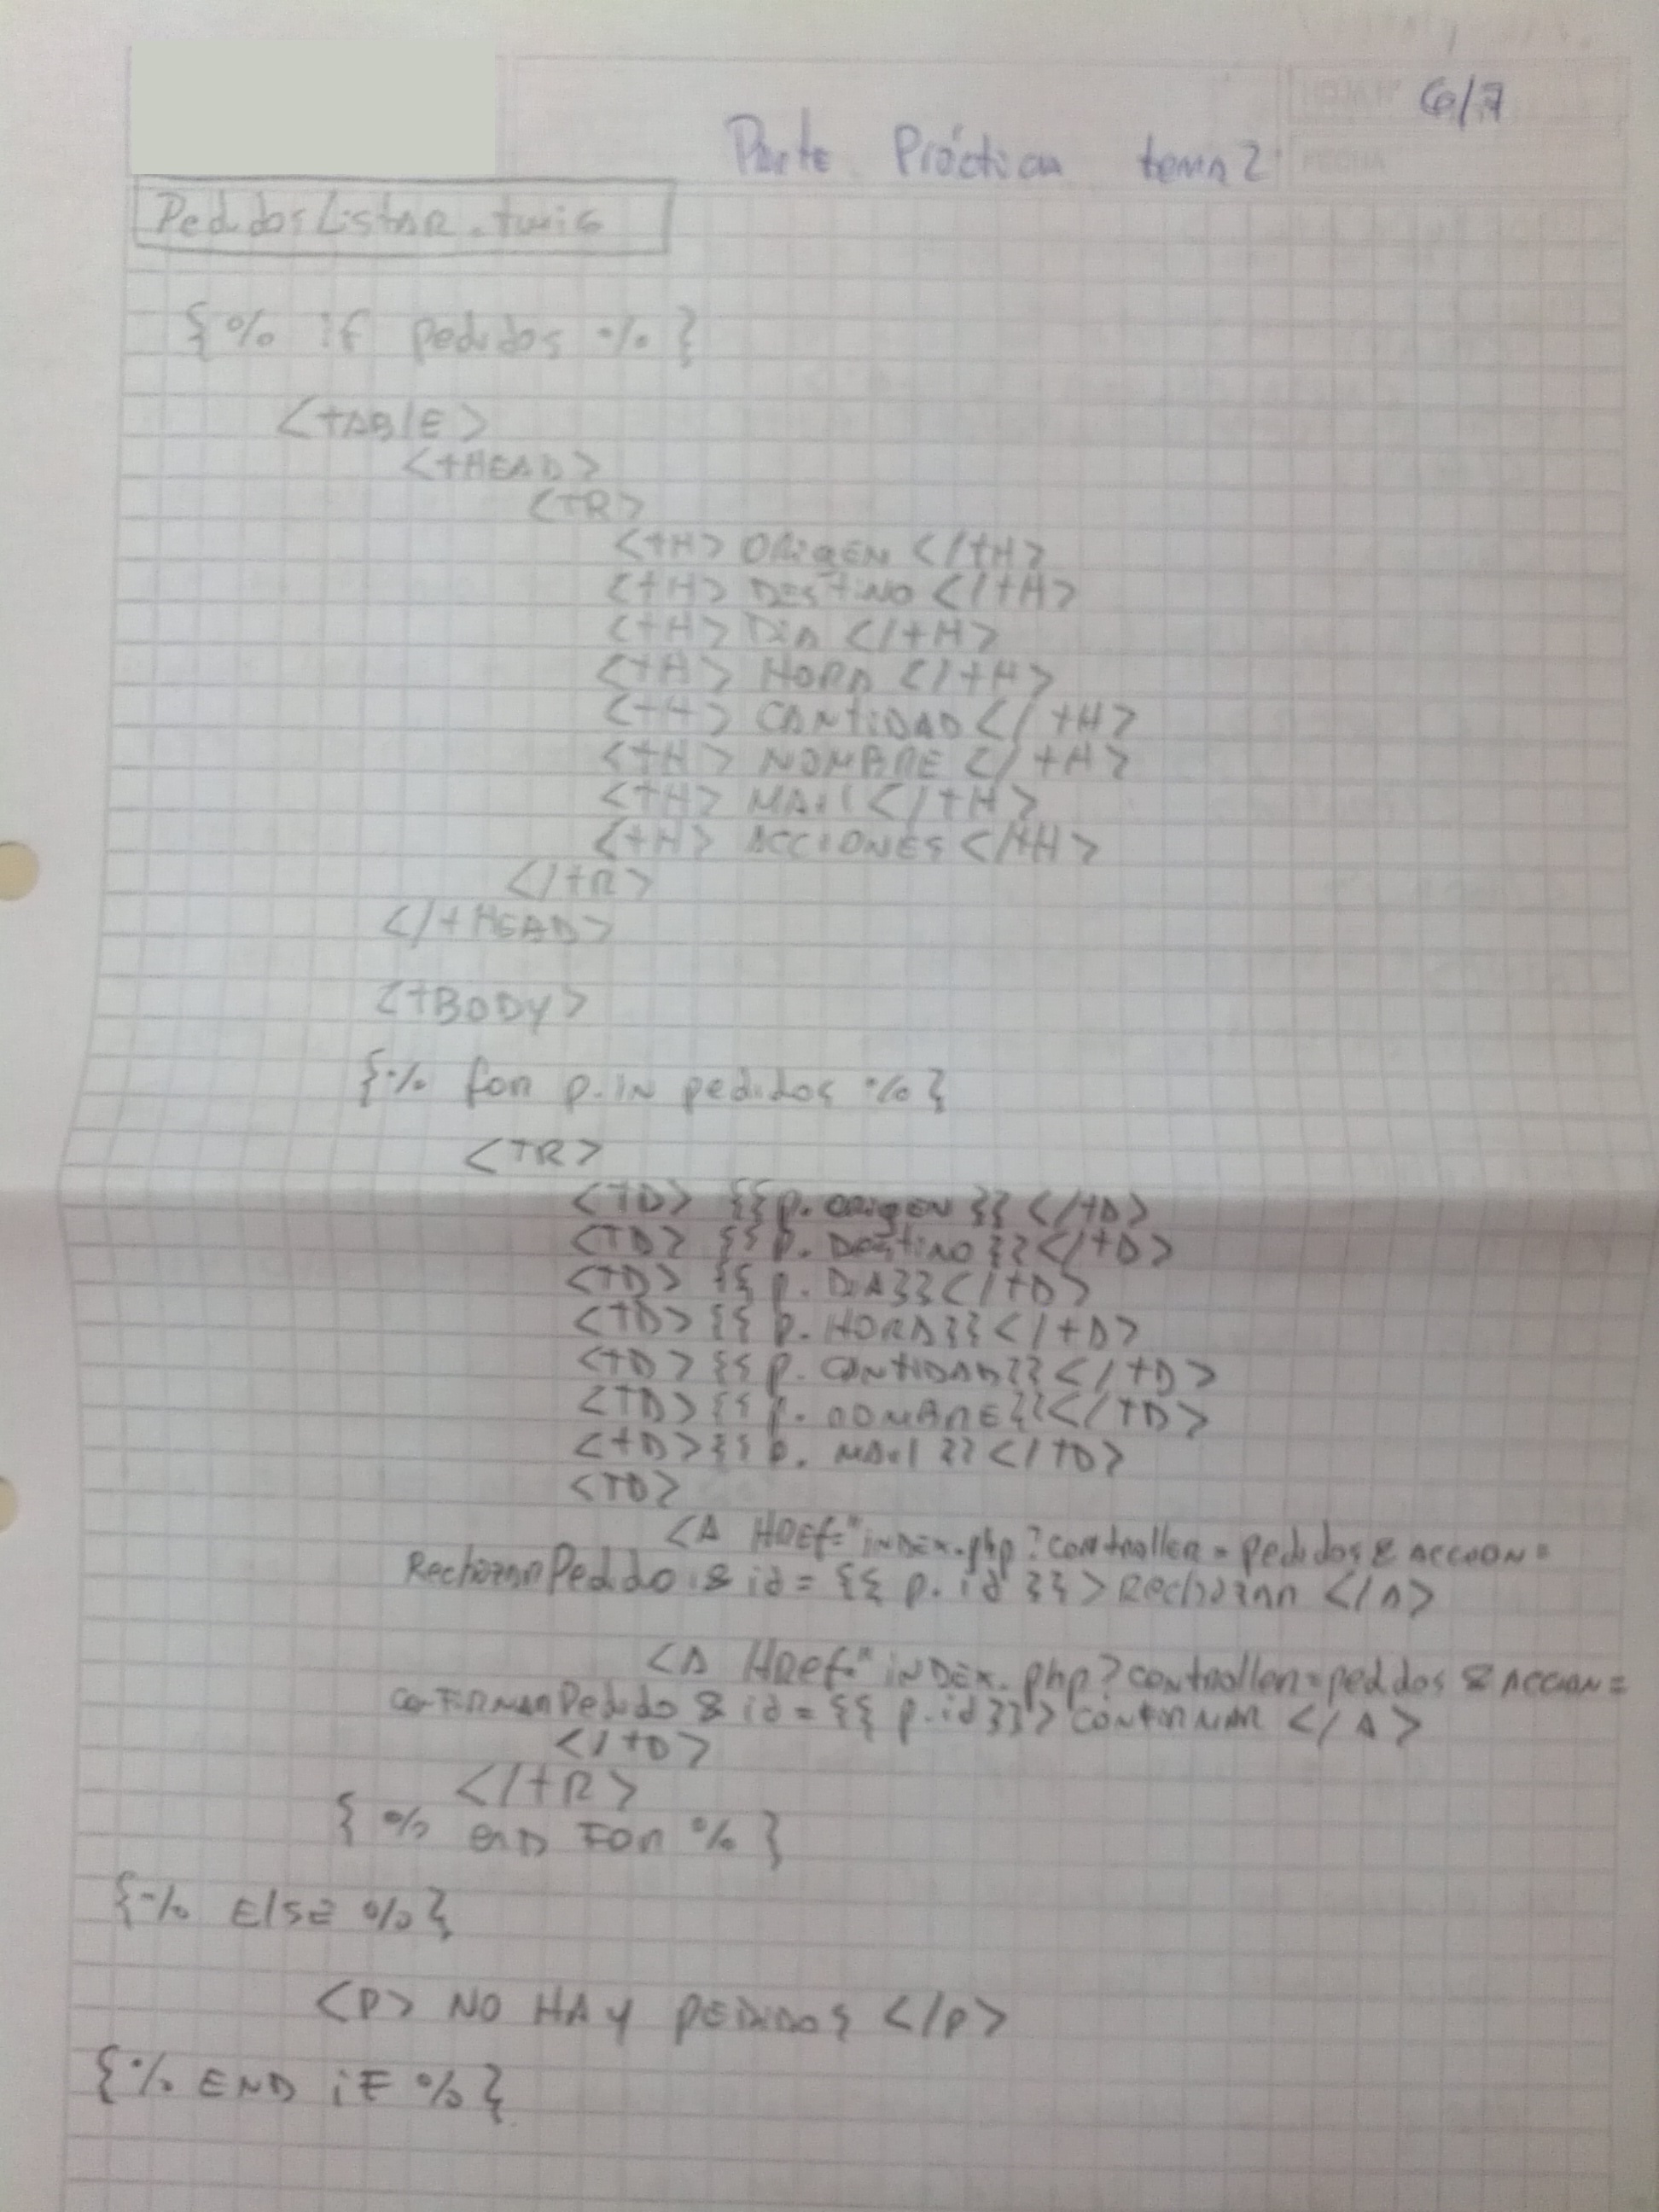 6/7
Parte Práctica tema 2
PedidosListar.twig
{% if pedidos %}
<tABlE>
<tHEAD>
<TR>
<tH> ORigEN </tH>
<tH> DEStiNO </tH>
<tH> DiA </tH>
<tH> HORA </tH>
<tH> CANtiDAD </tH>
<tH> NOMBRE </tH>
<tH> MAil </tH>
<tH> ACCiONES </tH>
</tR>
</tHEAD>
<tBODy>
{% for p in pedidos %}
<TR>
<TD> {{ p.ORigEN }} </tD>
<TD> {{ p. DEStiNO }} </tD>
<TD> {{ p. DiA}} </tD>
<TD> {{ p. HORA}} </tD>
<TD> {{ p. CANtiDAD}} </TD>
<TD> {{ p. NOMBRE}} </TD>
<tD> {{ p. MAil }} </TD>
<TD>
<A HREf="iNDEX.php?controller=pedidos&ACCiON=
RechazarPedido & id = {{ p.id }} > Rechazar </A>
<A HRef="iNDEX.php?controller=pedidos & ACCiON=
conFiRMARPedido & id = {{ p.id}} > CONFiRMAR </A>
</tD>
</tR>
{% END FOR %}
{% ElSE %}
<P> NO HAy PEDiDOS </P>
{% END iF %}